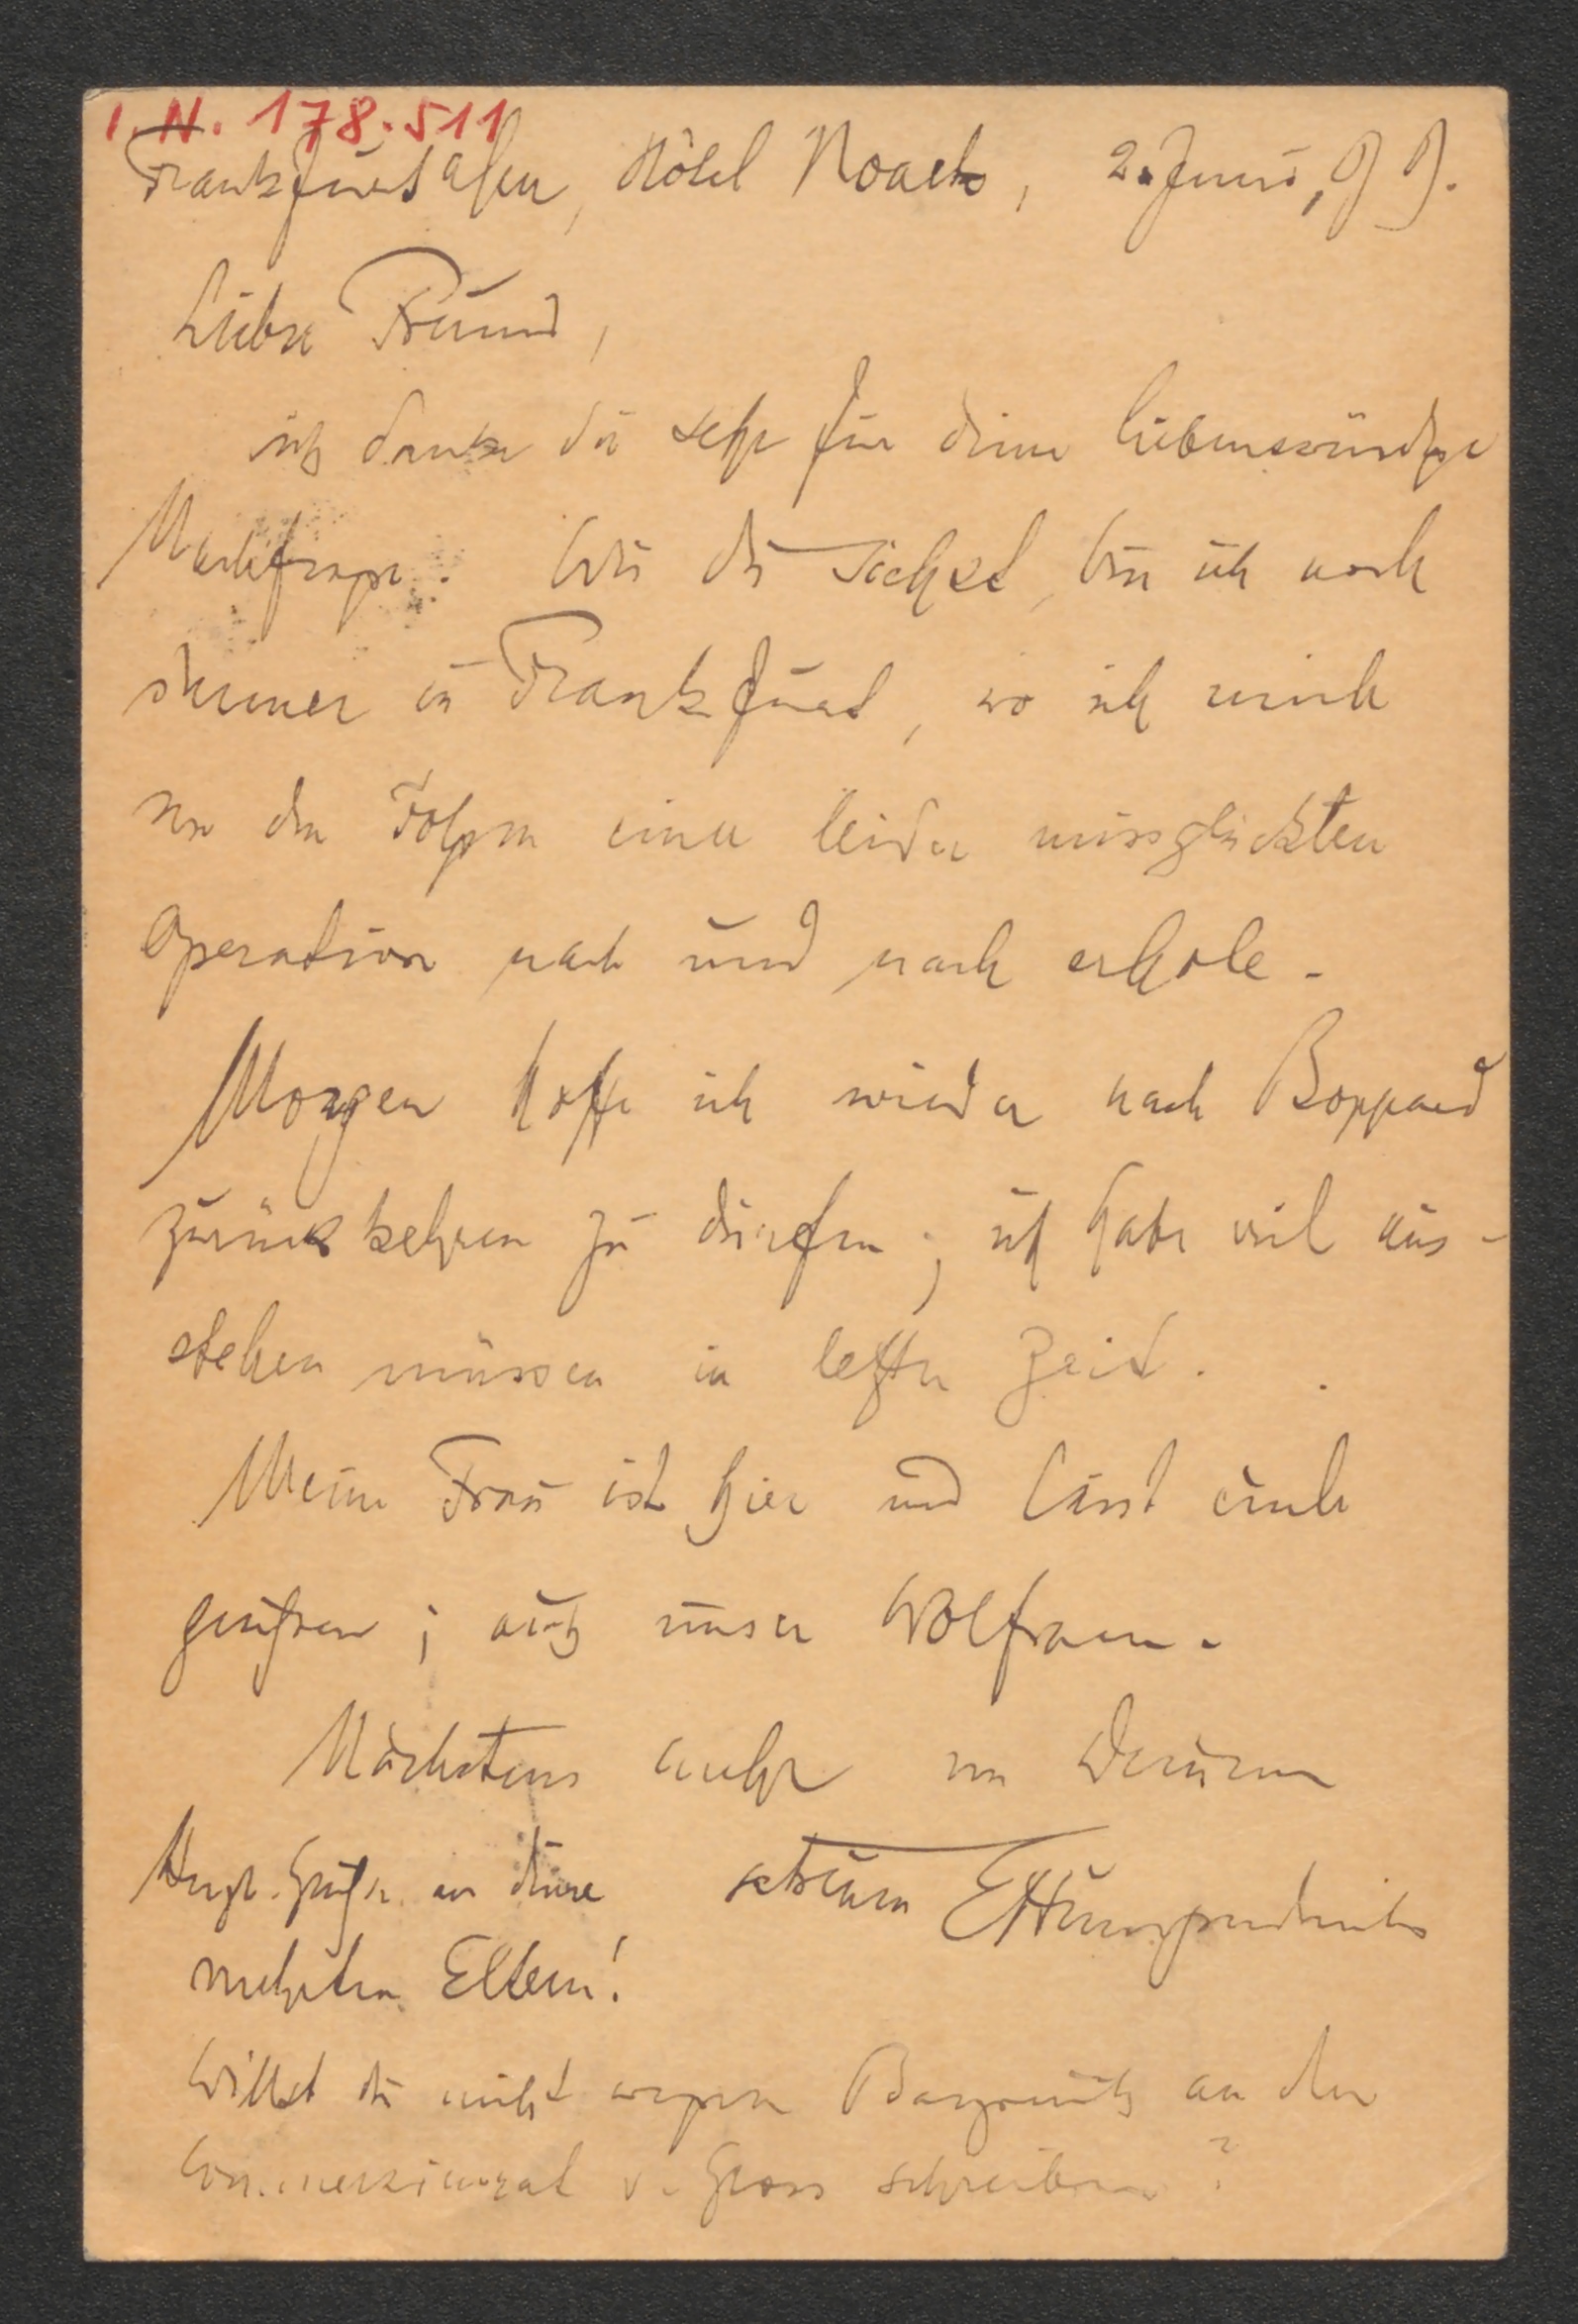 I. N. 178.511
Frankfurt a/M, Hôtel Noack, 2. Juni, 99.
Lieber Freund,
ich danke dir sehr für deine liebenswürdige
Nachfrage. Wie du siehst, bin ich noch
immer in Frankfurt, wo ich mich
von den Folgen einer leider missglückten
Operation nach und nach erhole.
Morgen hoffe ich wieder nach Boppard
zurückkehren zu dürfen; ich habe viel aus-
stehen müssen in letzter Zeit.
Meine Frau ist hier und lässt euch
grüßen; auch unser Wolfram.
Nächstens mehr von Deinem
Herzl. Grüße an deine getreuen E Humperdinck
verehrten Eltern!
Willst du nicht wegen Bayreuth an den
Commerzienrat v. Gross schreiben?